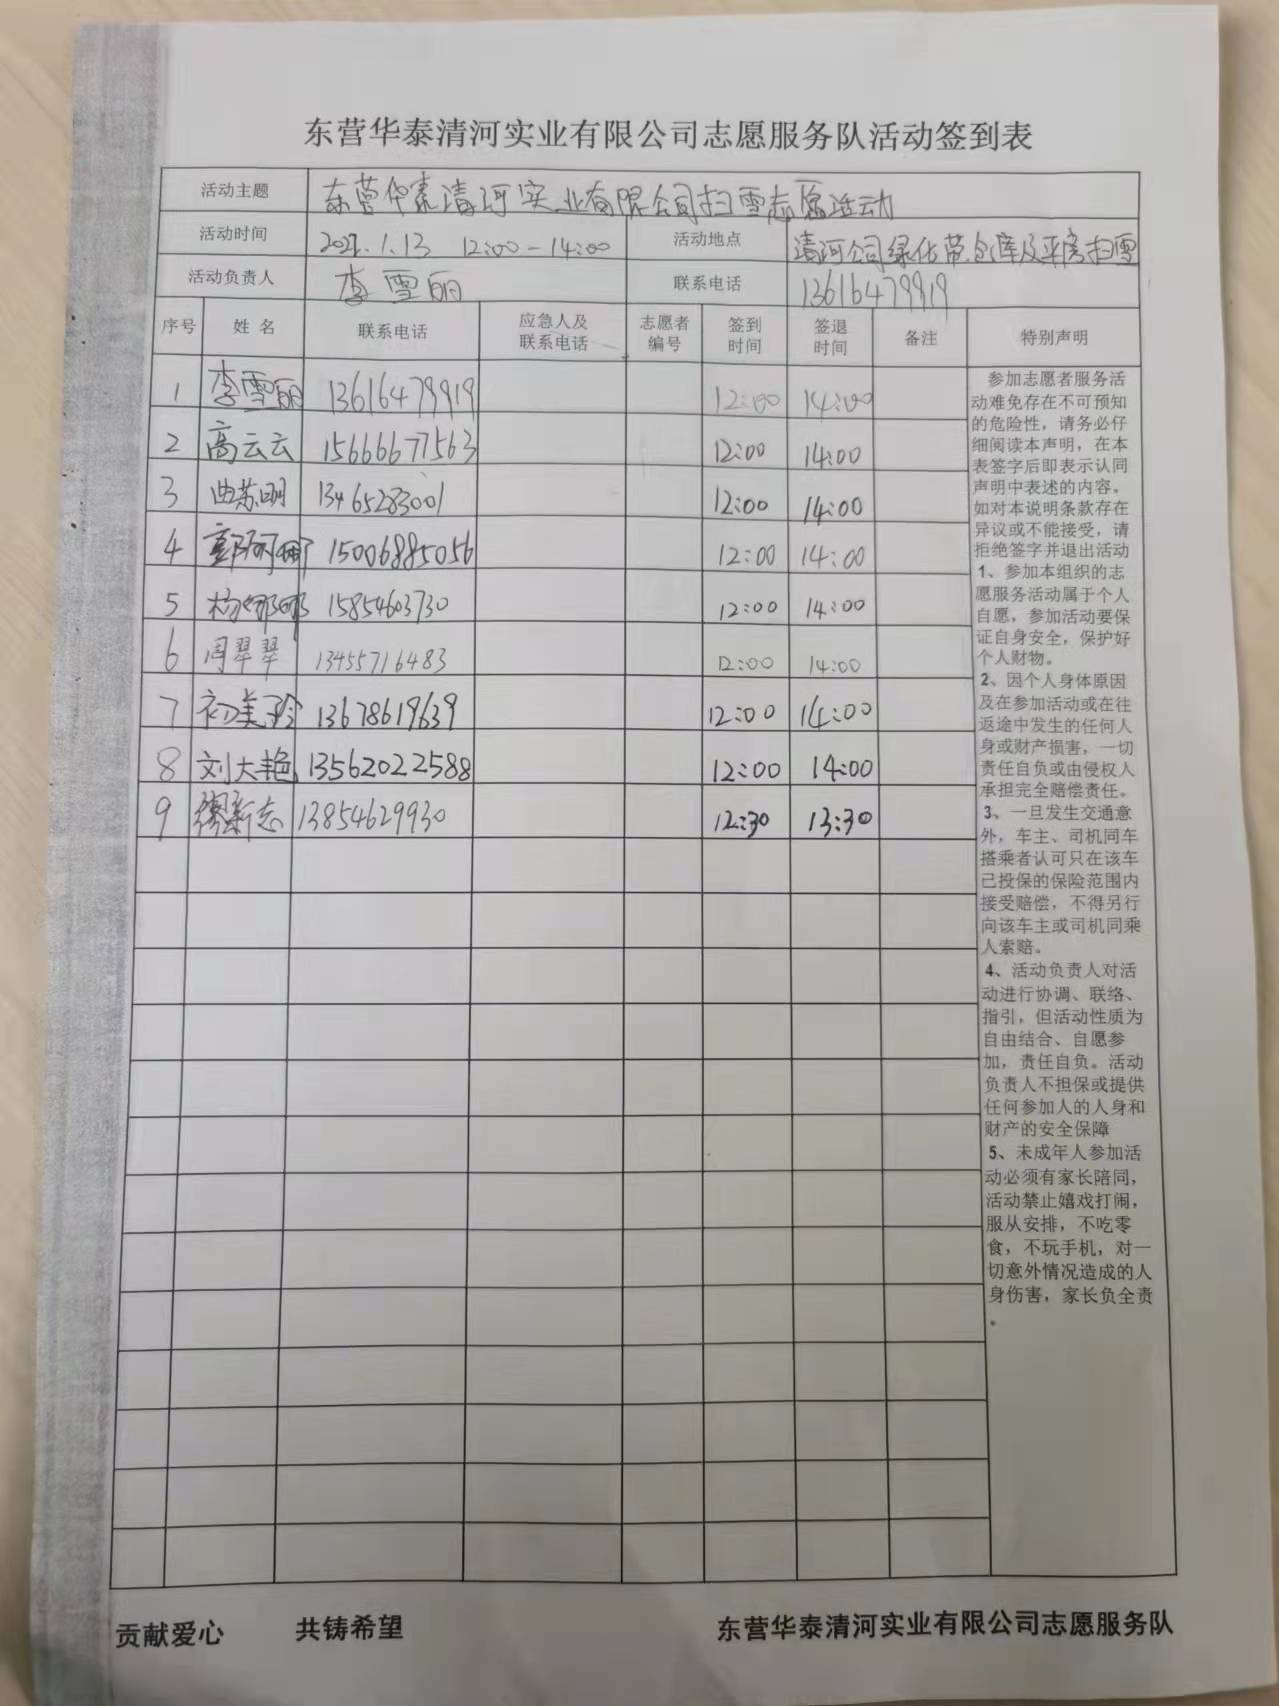 东营华泰清河实业有限公司志愿服务队活动签到表
活动主题 东营华泰清河实业有限公司扫雪志愿活动
活动时间 1.13 12:00-14:00 活动地点 清河公司绿化带、仓库及平房扫雪
活动负责人 李雪丽 联系电话 13616479919
序号 姓名 联系电话 应急人及联系电话 志愿者编号 签到时间 签退时间 备注 特别声明
1 李雪丽 13616479919 12:00 14:00
2 高云云 15666677563 12:00 14:00
3 曲苏明 13465283001 12:00 14:00
4 15006885056 12:00 14:00
5 杨娜娜 15854603730 12:00 14:00
6 周翠翠 13455716483 12:00 14:00
7 初美玲 13678619639 12:00 14:00
8 刘大艳 13562022588 12:00 14:00
9 新志 13854629930 12:30 13:30
参加志愿者服务活
动难免存在不可预知
的危险性，请务必仔
细阅读本声明，在本
表签字后即表示认同
声明中表述的内容。
如对本说明条款存在
异议或不能接受，请
拒绝签字并退出活动
1、参加本组织的志
愿服务活动属于个人
自愿，参加活动要保
证自身安全，保护好
个人财物。
2、因个人身体原因
及在参加活动或在往
返途中发生的任何人
身或财产损害，一切
责任自负或由侵权人
承担完全赔偿责任。
3、一旦发生交通意
外，车主、司机同车
搭乘者认可只在该车
已投保的保险范围内
接受赔偿，不得另行
向该车主或司机同乘
人索赔。
4、活动负责人对活
动进行协调、联络、
指引，但活动性质为
自由结合、自愿参
加，责任自负。活动
负责人不担保或提供
任何参加人的人身和
财产的安全保障
5、未成年人参加活
动必须有家长陪同，
活动禁止嬉戏打闹，
服从安排，不吃零
食，不玩手机，对一
切意外情况造成的人
身伤害，家长负全责
。
贡献爱心 共铸希望 东营华泰清河实业有限公司志愿服务队